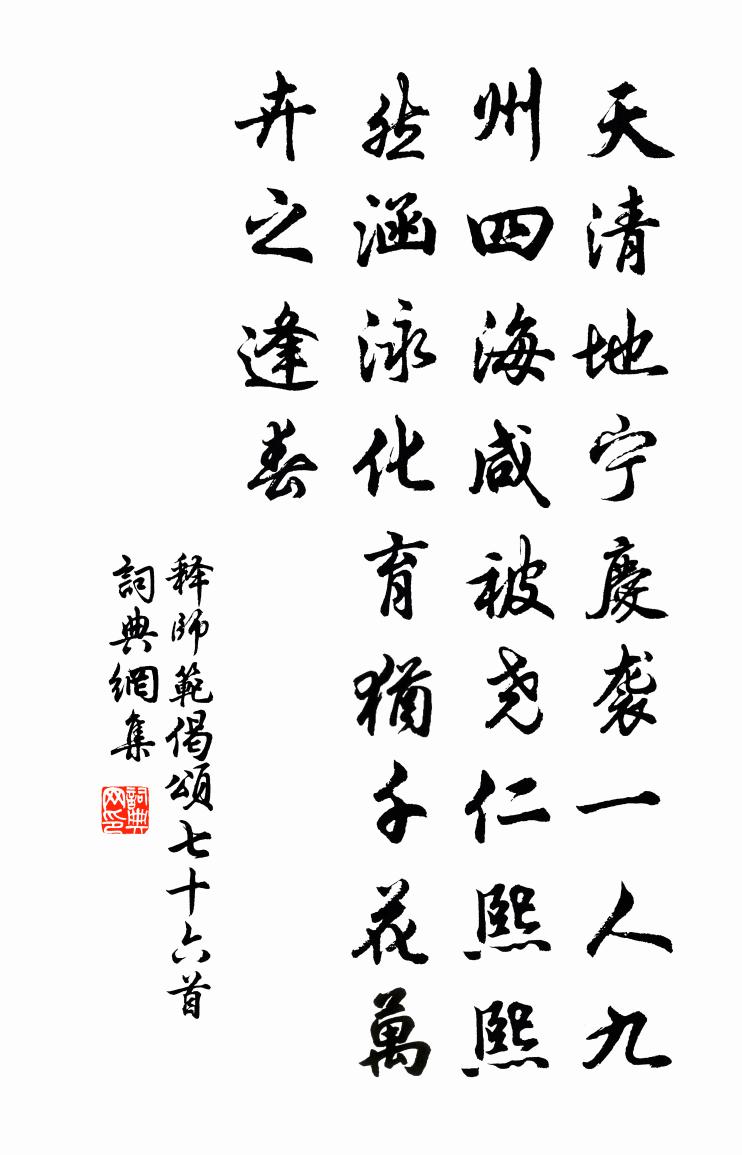 天清地宁慶袭一人九
州四海咸被尧仁熙熙
然涵泳化育猶千花萬
卉之逢春
释師範偈頌七十六首
詞典網集
詞典网印